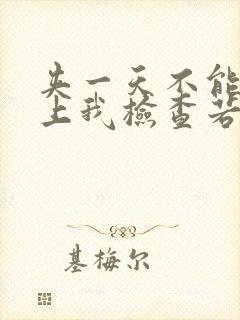 失一天不能
上我檢查若
基梅尔